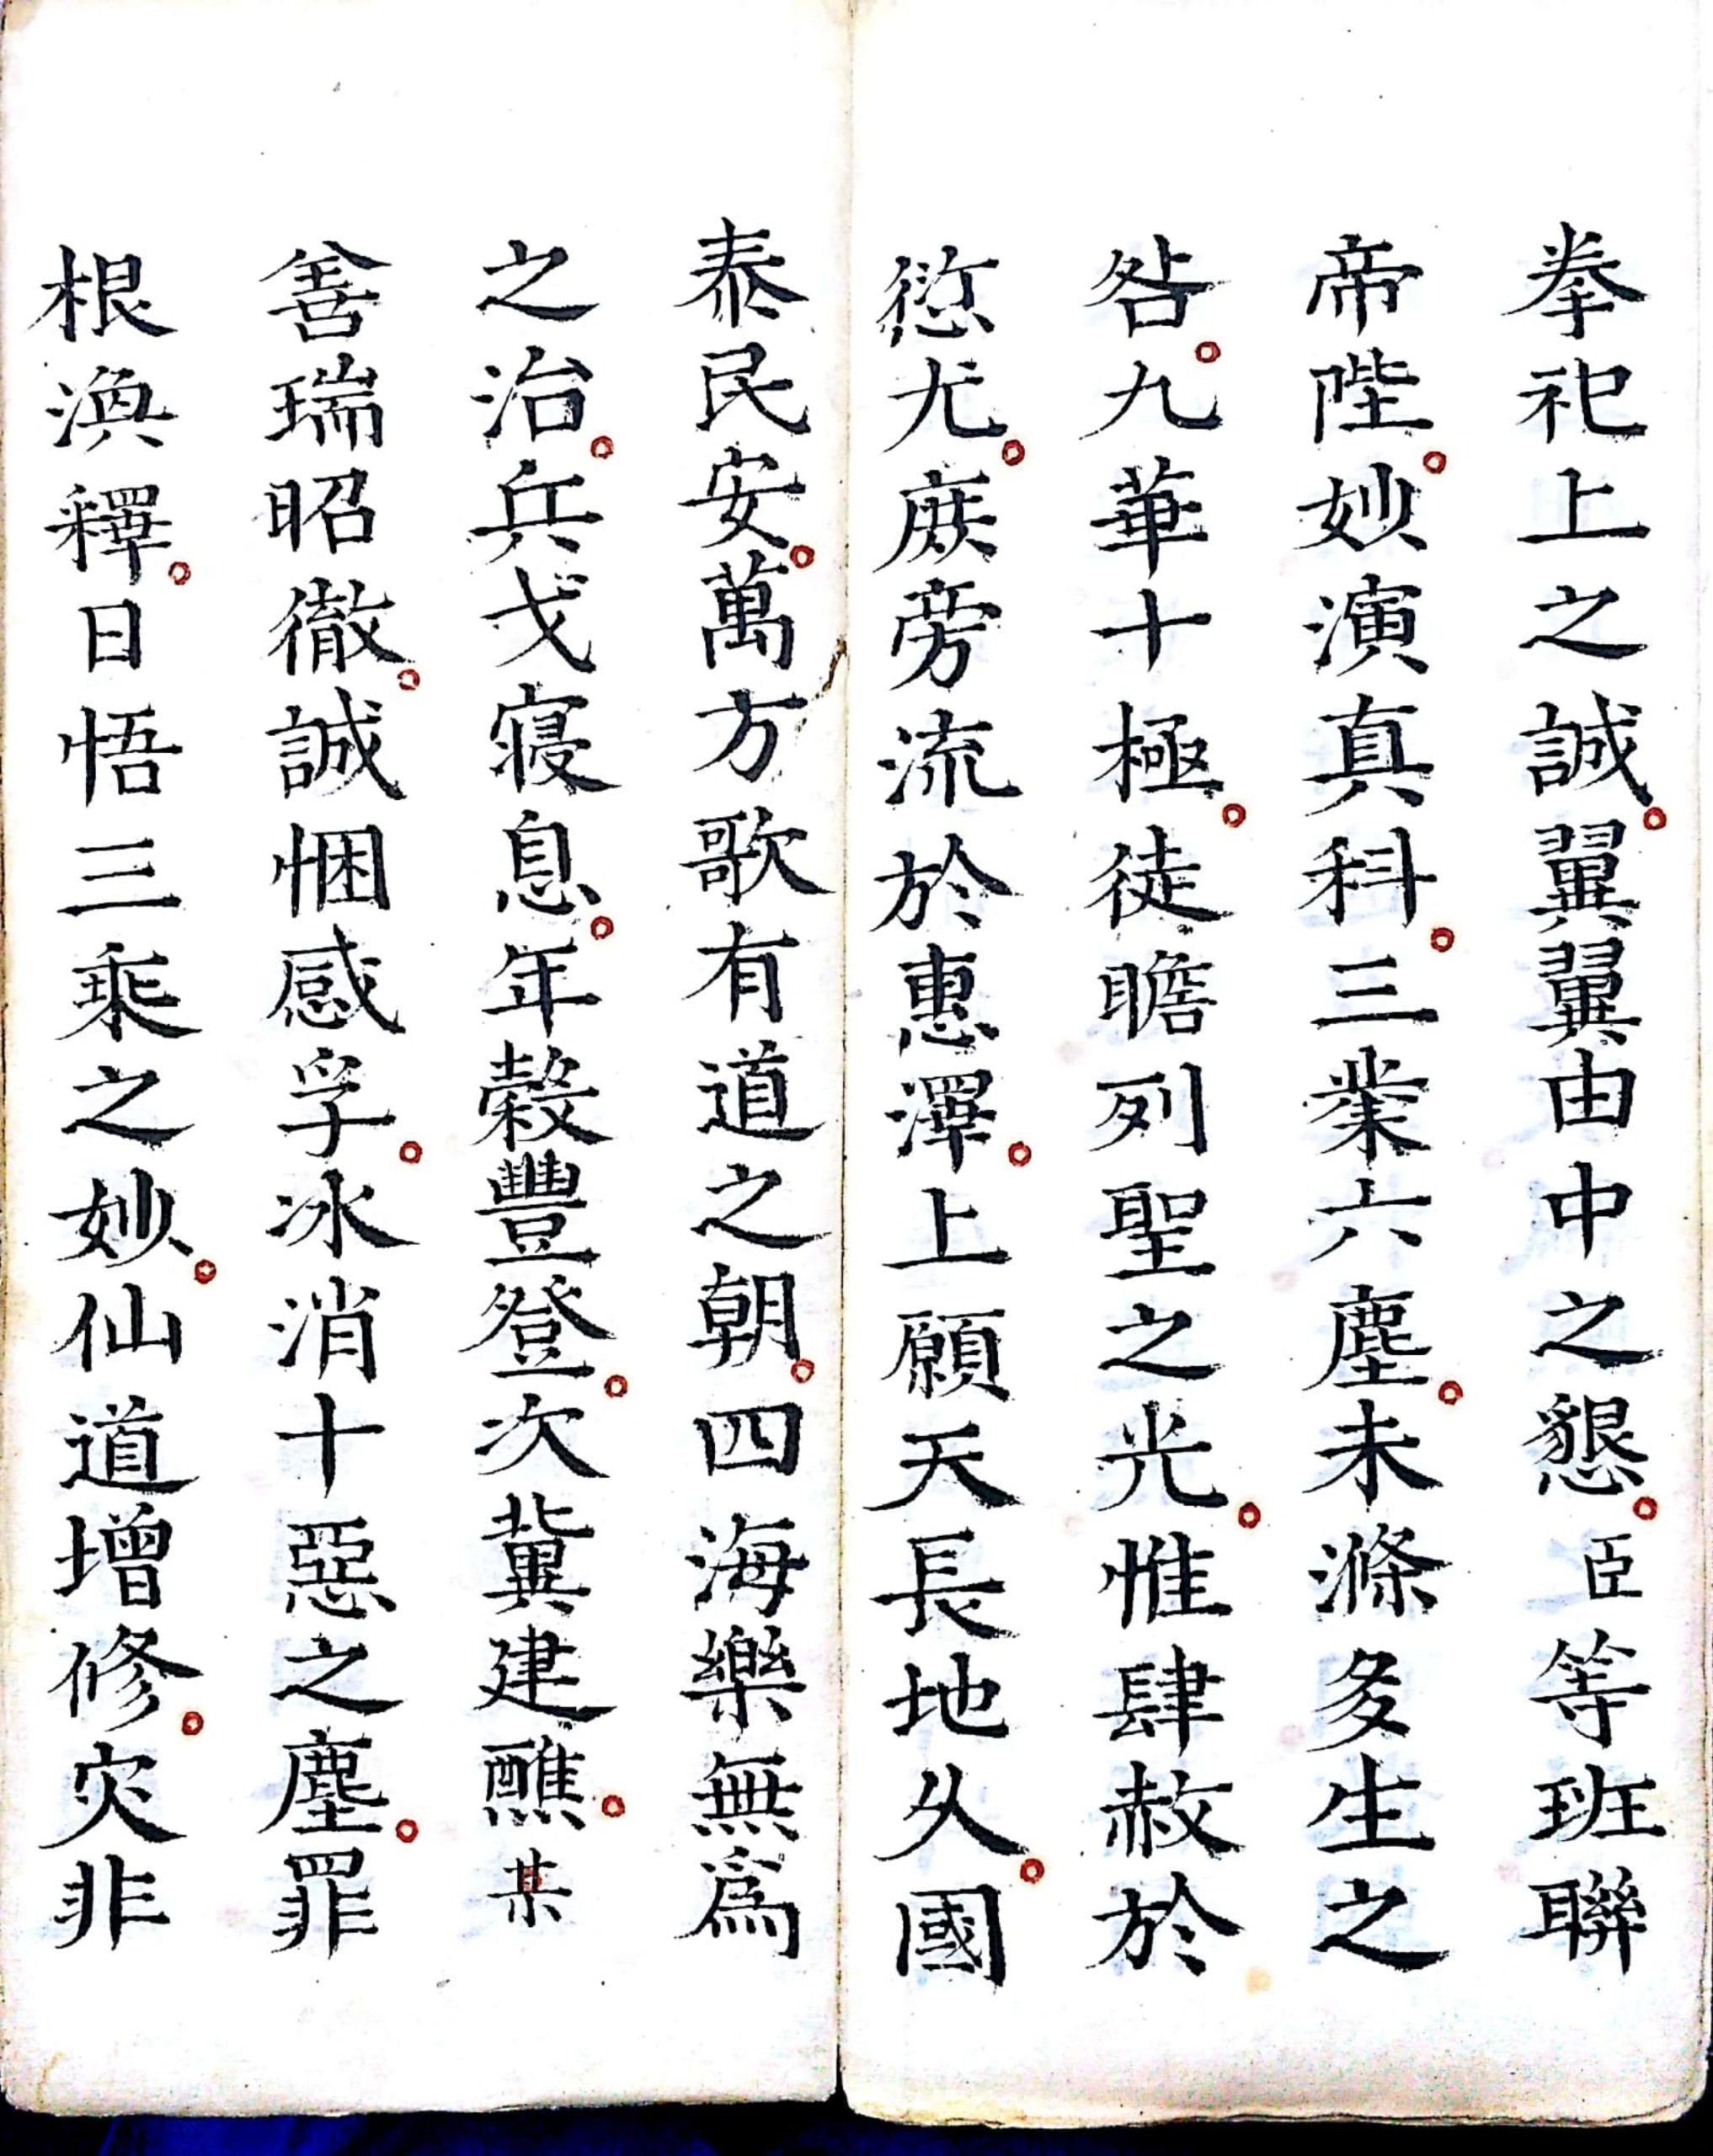 拳祀上之誠。翼翼由中之懇。臣等班聯
帝陛。妙演真科。三業六塵。未滌多生之
咎。九華十極。徒瞻列聖之光。惟肆赦於
愆尤。庶旁流於惠澤。上願天長地久。國
泰民安。萬方歌有道之朝。四海樂無為
之治。兵戈寢息。年穀豐登。次冀建醮。某
善瑞昭徹。誠悃感孚。冰消十惡之塵。罪
根渙釋。日悟三乘之妙。仙道增修。灾非